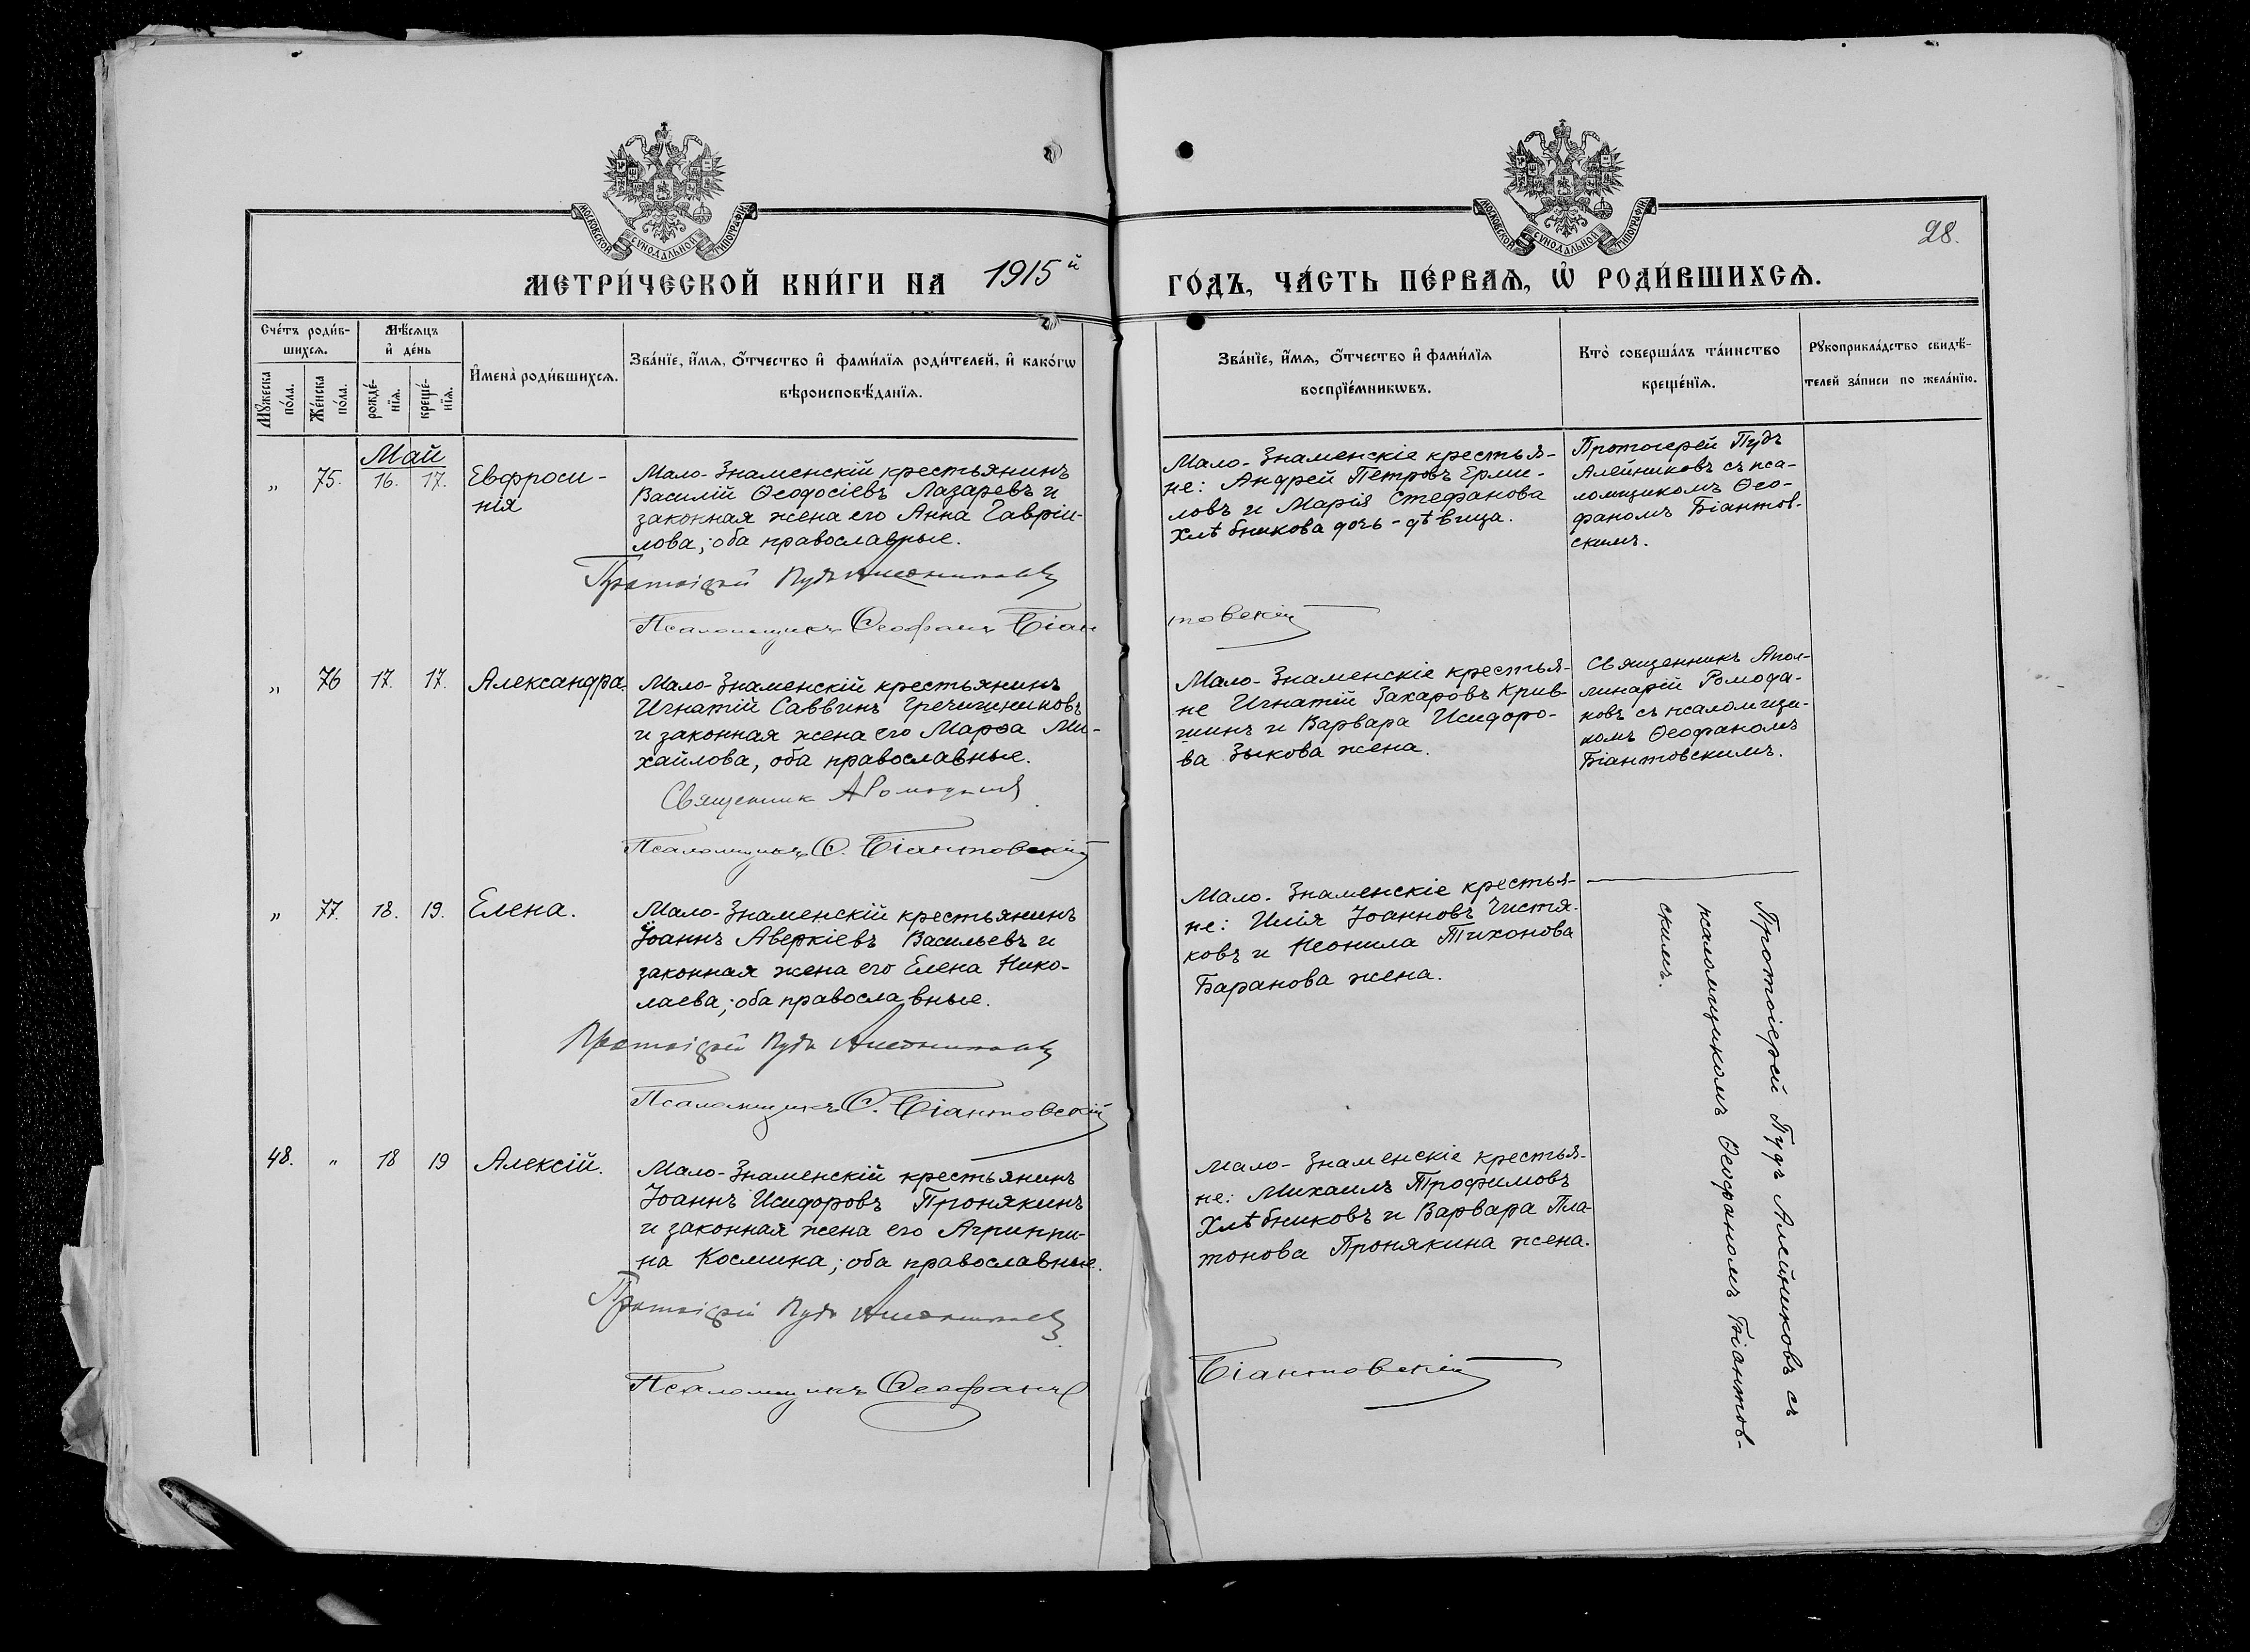 МОСКОВСКОЙ СѴНОДАЛЬНОЙ ТИПОГРАФІИ
МОСКОВСКОЙ СѴНОДАЛЬНОЙ ТИПОГРАФІИ
28.
МЕТРИ́ЧЕСКОЙ КНИ́ГИ НА 1915й ГО́ДЪ, ЧА́СТЬ ПЕ́РВАѦ, Ѡ҆ РОДИ́ВШИХСѦ.
Сче́тъ роди́в-
шихсѧ.
Мꙋ́жеска
по́ла.
Же́нска
по́ла.
Мѣ́сѧцъ
и҆ де́нь
рожде́-
нїѧ.
креще́-
нїѧ.
И҆мена̀ роди́вшихсѧ.
Зва́нїе, и҆́мѧ, о҆́тчество и҆ фами́лїѧ роди́телей, и҆ како́гѡ
вѣроисповѣ́данїѧ.
Зва́нїе, и҆́мѧ, о҆́тчество и҆ фами́лїѧ
воспрїе́мникѡвъ.
Кто̀ соверша́лъ та́инство
креще́нїѧ.
Рꙋкоприкла́дство свидѣ́-
телей за́писи по жела́нїю.
Май
„ 75. 16. 17. Евфроси-
нія
Мало-Знаменскій крестьянинъ
Василій Ѳеодосіевъ Лазаревъ и
законная жена его Анна Гавріи-
лова; оба православные.
Протоіерей Пудъ Алейниковъ
Псаломщикъ Ѳеофанъ Біан
товскій
Мало-Знаменскіе крестья-
не: Андрей Петровъ Ерми-
ловъ и Марія Стефанова
Хлѣбникова дочь-дѣвица.
Протоіерей Пудъ
Алейниковъ съ пса-
ломщикомъ Ѳео-
фаномъ Біантов-
скимъ.
„ 76 17. 17. Александра.
Мало-Знаменскій крестьянинъ
Игнатій Саввинъ Гречишниковъ
и законная жена его Марѳа Ми-
хайлова, оба православные.
Священник А Ромодановъ
Псаломщикъ Ѳ. Біантовскій
Мало-Знаменскіе крестья-
не Игнатій Захаровъ Крив-
шинъ и Варвара Исидоро-
ва Зыкова жена.
Священникъ Апол-
линарій Ромода-
ковъ съ псаломщи-
комъ Ѳеофаномъ
Біантовскимъ.
„ 77. 18. 19. Елена.
Мало-Знаменскій крестьянинъ
Іоаннъ Аверкіевъ Васильевъ и
законная жена его Елена Нико-
лаева; оба православные.
Протоіерей Пудъ Алейниковъ
Псаломщикъ Ѳ. Біантовскій
Мало-Знаменскіе крестья-
не: Илія Іоанновъ Чистя-
ковъ и Неонила Тихонова
Баранова жена.
Протоіерей Пудъ Алейниковъ съ
псаломщикомъ Ѳеофаномъ Біантов-
скимъ.
48. „ 18 19 Алексій.
Мало-Знаменскій крестьянинъ
Іоаннъ Исидоровъ Пронякинъ
и законная жена его Агриппи-
на Космина; оба православные.
Протоіерей Пудъ Алейниковъ
Псаломщикъ Ѳеофанъ
Біантовскій
Мало-Знаменскіе крестья-
не: Михаилъ Трофимовъ
Хлѣбниковъ и Варвара Пла-
тонова Пронякина жена.